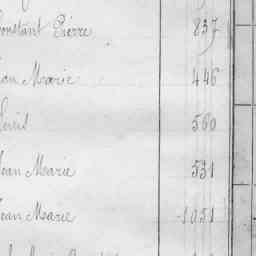 Constant Pierre 837
Jean Marie 446
Louis 560
Jean Marie 531
Jean Marie 1051